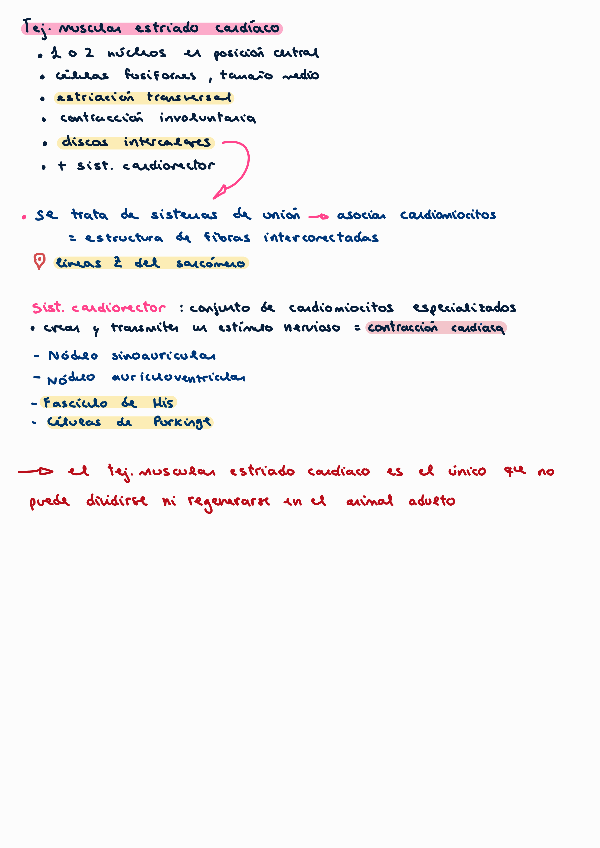 Tej. muscular estriado cardíaco
• 1 o 2 núcleos en posición central
• células fusiformes, tamaño medio
• estriación transversal
• contracción involuntaria
• discos intercalares
• + sist. cardiorector
• se trata de sistemas de unión → asocian cardiomiocitos
= estructura de fibras interconectadas
líneas Z del sarcómero
Sist. cardiorector : conjunto de cardiomiocitos especializados
• crear y transmiter un estímulo nervioso = contracción cardíaca
- Nódulo sinoauricular
- Nódulo aurículoventricular
- Fascículo de His
- Células de Purkinge
→ el tej. muscular estriado cardíaco es el único que no
puede dividirse ni regenerarse en el animal adulto